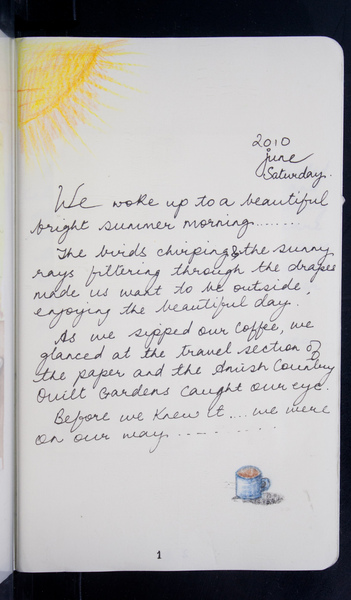 2010
June
Saturday.
We woke up to a beautiful
bright summer morning.......
The birds chirping & the sunny
rays fittering through the drapes
made us want to be outside,
enjoying the beautiful day.
As we sipped our coffee, we
glanced at the travel section of
the paper and the Amish Country
Quilt Gardens caught our eye.
Before we knew it .... we were
on our way .........
1